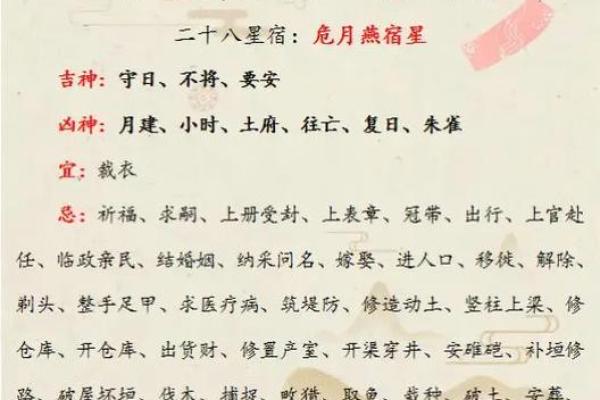 二十八星宿：危月燕宿星
吉神：守日、不将、要安
凶神：月建、小时、土府、往亡、复日、朱雀
宜：裁衣
忌：祈福、求嗣、上册受封、上表章、冠带、出行、上官赴
任、临政亲民、结婚姻、纳采问名、嫁娶、进人口、移徙、解除、
剃头、整手足甲、求医疗病、筑堤防、修造动土、竖柱上梁、修
仓库、开仓库、出货财、修置产室、开渠穿井、安碓硙、补垣修
路、破屋坏垣、伐木、捕捉、畋猎、取鱼、栽种、破土、安葬、